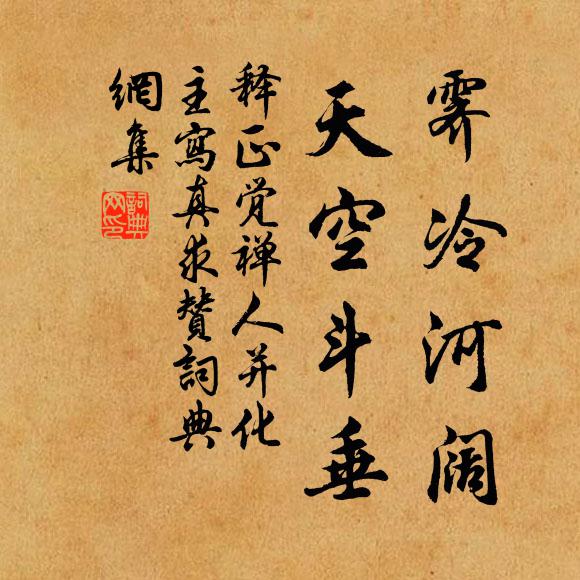 霁冷河阔
天空斗垂
释正觉禅人并化
主写真求赞词典
网集
詞典
网印